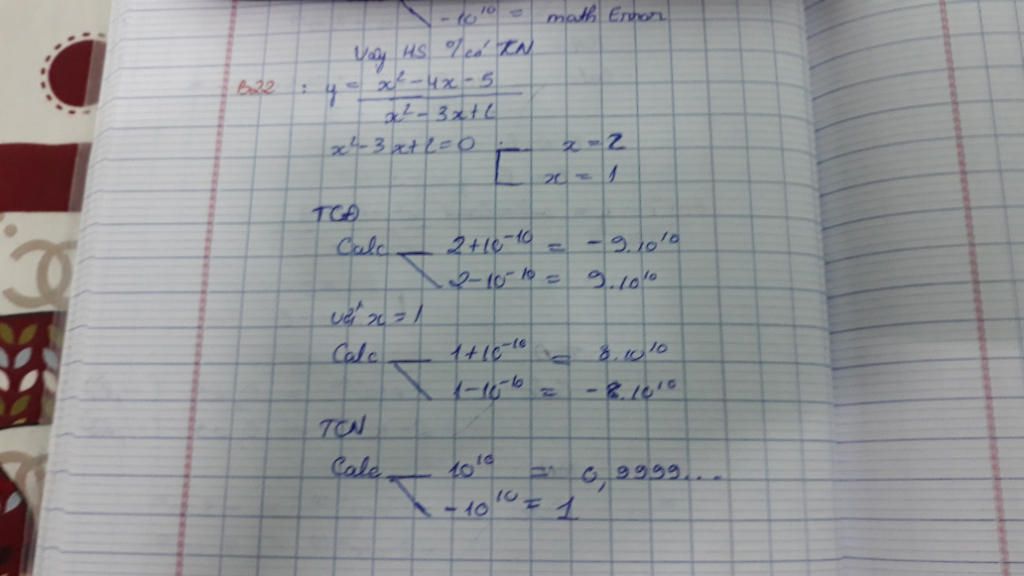 -10¹⁰ = math Error
Vậy HS % có TCN
B22 : y = x² - 4x - 5
x² - 3x + 2
x² - 3x + 2 = 0 x = 2
x = 1
TCĐ
Calc 2+10⁻¹⁰ = -9.10¹⁰
2-10⁻¹⁰ = 9.10¹⁰
với x = 1
Calc 1+10⁻¹⁰ = 8.10¹⁰
1-10⁻¹⁰ = -8.10¹⁰
TCN
Calc 10¹⁰ = 0,9999...
-10¹⁰ = 1